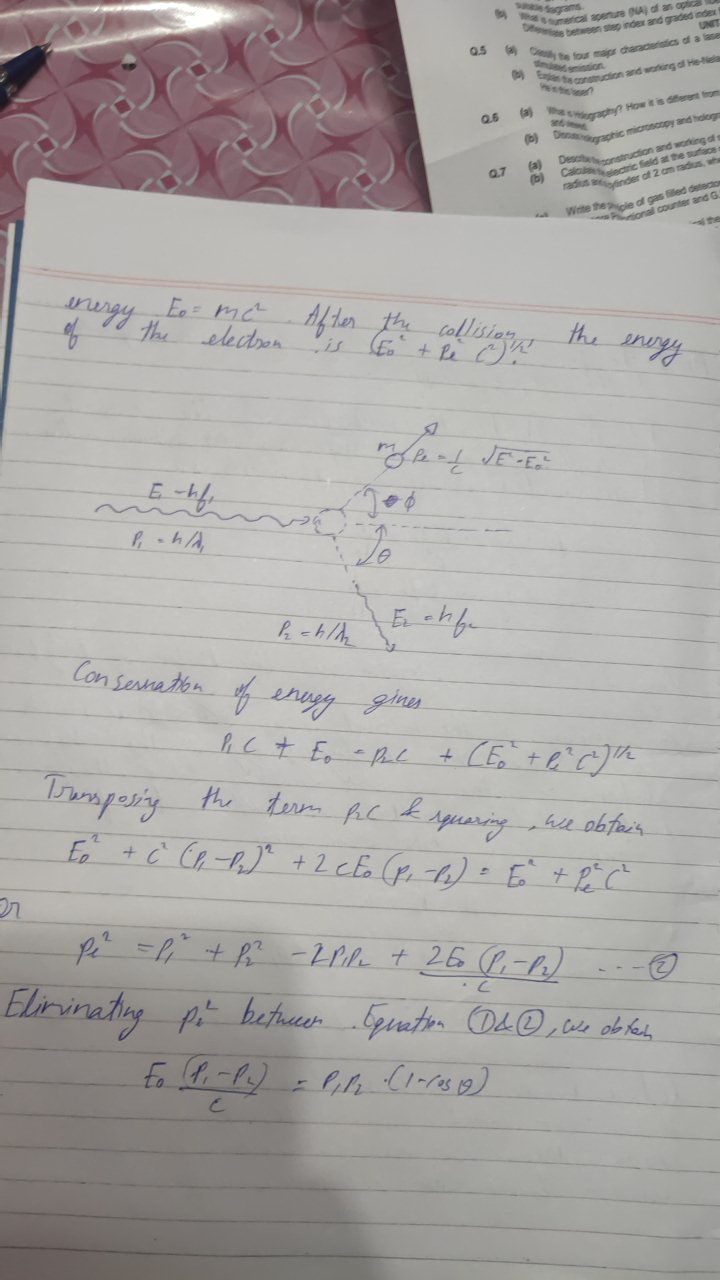 suitable diagrams.
(b) What is numerical aperture (NA) of an optical
Differentiate between step index and graded index
UNIT
Q.5 (a) Classify the four major characteristics of a
stimulated emission.
(b) Explain the construction and working of
He in this laser?
Q.6 (a) What is Holography? How it is different from
(b) Discuss holographic microscopy and
Q.7 (a) Describe the construction and working of
(b) Calculate the electric field at the surface
radius cylinder of 2 cm radius,
Write the of gas filled
counter and G.
energy E₀ = mc². After the collision, the energy
of the electron is (E₀² + Pe² C²)^1/2.
m Pe = 1/c √E² - E₀²
E₁ - hf₁
ϕ
P₁ = h/λ₁
θ
E₂ = hf₂
P₂ = h/λ₂
Conservation of energy gives
P₁ C + E₀ = P₂C + (E₀² + Pe² C²)^1/2
Transposing the term P₂C & squaring, we obtain
E₀² + C² (P₁ - P₂)² + 2 cE₀ (P₁ - P₂) = E₀² + Pe² C²
or
Pe² = P₁² + P₂² - 2P₁P₂ + 2E₀ (P₁ - P₂)/c ---- ②
Eliminating Pe² between Equation ① & ②, we obtain
E₀ (P₁ - P₂)/c = P₁P₂ · (1 - cos θ)